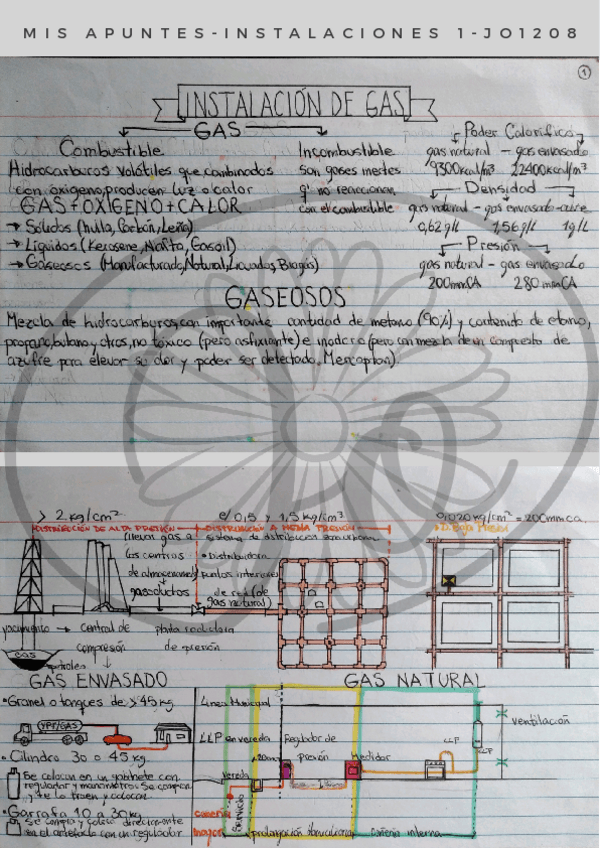 MIS APUNTES-INSTALACIONES 1-JO1208
1
INSTALACIÓN DE GAS
GAS
Combustible
Hidrocarburos volátiles que combinados
con oxigeno, producen luz o calor
GAS+OXÍGENO+CALOR
→ Solidos (hulla, Carbón, Leña)
→ Líquidos (Kerosene, Nafta, Gasoil)
→ Gaseosos (Manufacturado, Natural, Licuados, Biogás)
Incombustible
son gases inertes
q' no reaccionan
con el combustible
Poder Calorífico
gas natural - gas envasado
9300kcal/m³ 22400kcal/m³
Densidad
gas natural - gas envasado - aire
0,62g/L 1,56g/L 1g/L
Presión
gas natural - gas envasado
200mmCA 280mmCA
GASEOSOS
Mezcla de hidrocarburos, con importante cantidad de metano (90%) y contenido de etano,
propano, butano y otros, no tóxico (pero asfixiante) e inodoro (pero con mezcla de un compuesto de
azufre para elevar su olor y poder ser detectado, Mercaptan).
> 2kg/cm²
DISTRIBUCIÓN DE ALTA PRESIÓN
e/ 0,5 y 1,5 kg/cm³
DISTRIBUCIÓN A MEDIA PRESIÓN
0,020kg/cm² = 200mmca
llevar gas a
los centros
de almacenaje
gasoductos
sistema de distribución
• Distribuidora
puntos interiores
de red (de
gas natural)
yacimiento → Central de
compresión
planta reductora
de presión
GAS
GAS ENVASADO
• Granel o tanques de >45kg
YPF/GAS
• Cilindro 30 o 45 kg.
Se colocan en un gabinete con
regulador y manómetro. Se compra
y te lo traen y colocan
• Garrafa 10 a 30kg
Se compra y coloca directamente
en el artefacto con un regulador
GAS NATURAL
Linea Municipal
LLP en vereda
Regulador de
Presión
Medidor
LLP
ventilación
Vereda
Servicio
cañería
mayor
prolongación domiciliaria
Cañería interna